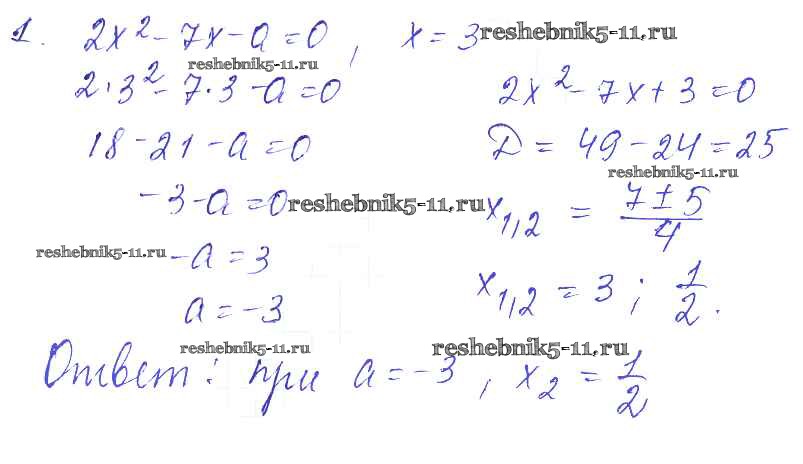 1. 2x² - 7x - a = 0, x = 3 reshebnik5-11.ru
reshebnik5-11.ru
2·3² - 7·3 - a = 0
2x² - 7x + 3 = 0
18 - 21 - a = 0
D = 49 - 24 = 25
reshebnik5-11.ru
-3 - a = 0 reshebnik5-11.ru
x₁,₂ = (7 ± 5)/4
reshebnik5-11.ru -a = 3
x₁,₂ = 3; 1/2.
a = -3
reshebnik5-11.ru reshebnik5-11.ru
Ответ: при a = -3, x₂ = 1/2